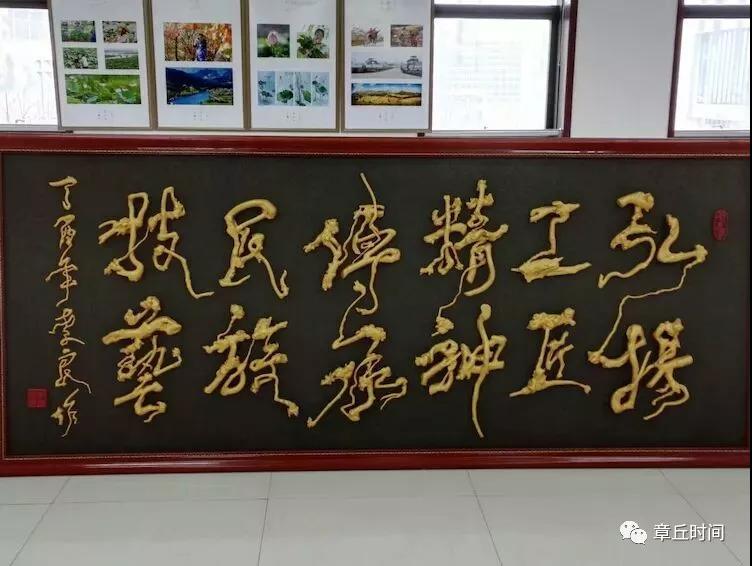 弘揚
工匠
精神
傳承
民族
技藝
丁酉年李作
章丘时间